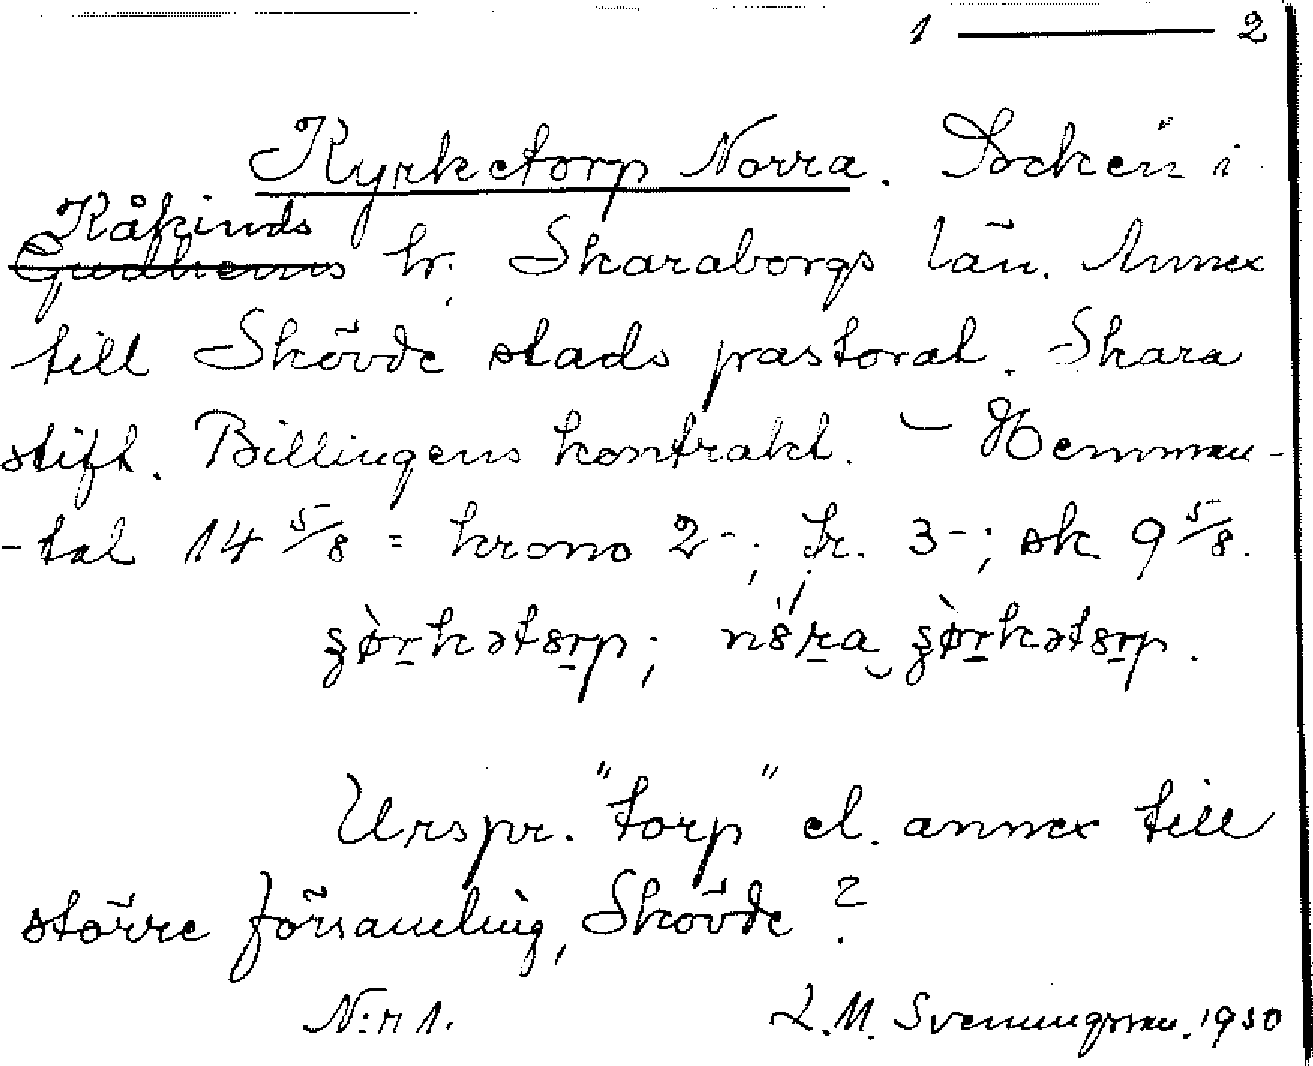 1 — 2
Kyrketorp Norra. Socken i
Kåkinds
Gudhems hr. Skaraborgs län. Annex
till Skövde stads pastorat. Skara
stift. Billingens kontrakt. — Hemman-
-tal 14 5/8 = krono 2-; fr. 3-; sk 9 5/8.
ʂø̀rkətɞrp; nɞ́ra ʂø̀rkətɞrp.
Urspr. "torp" el. annex till
större församling, Skövde?
N:r 1. L.M. Svenungsson. 1930